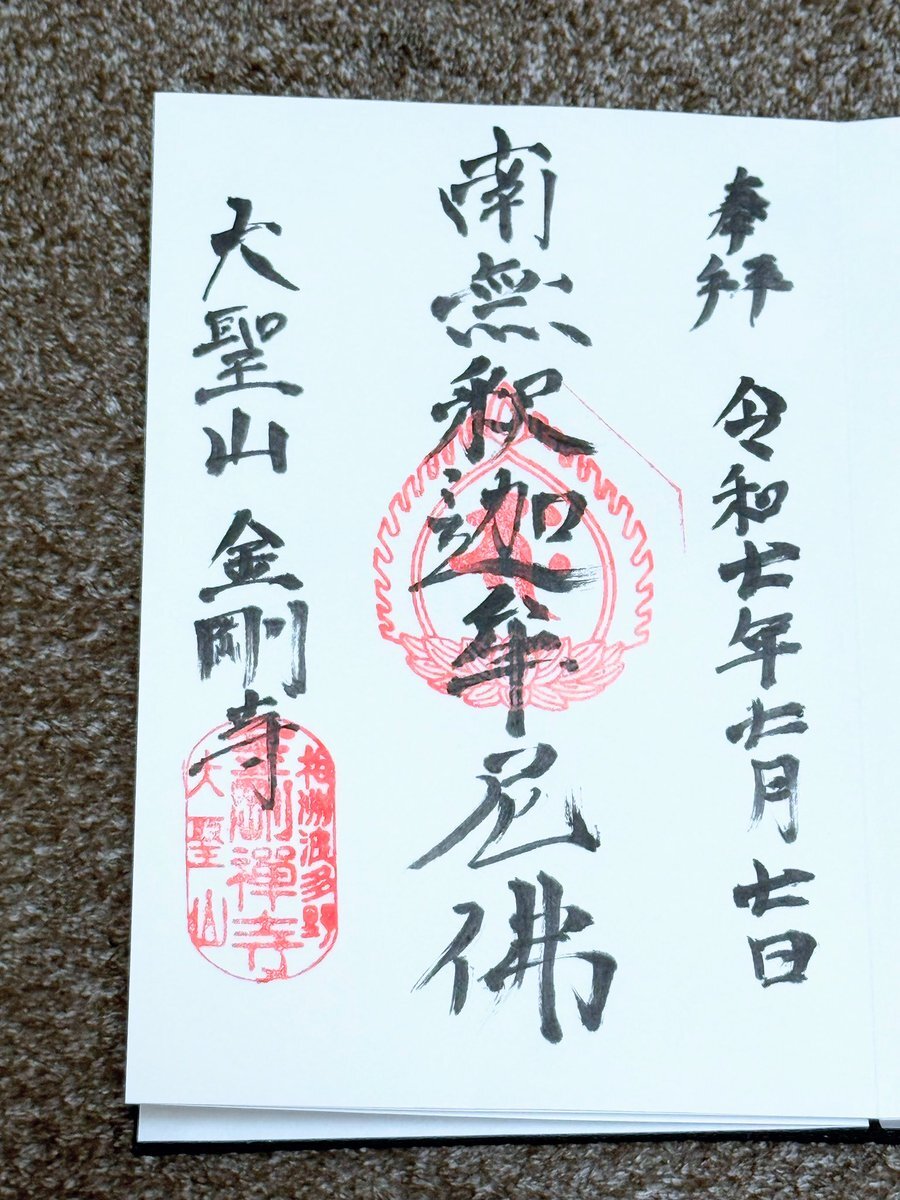 奉拝 令和七年七月七日
南無釈迦牟尼佛
大聖山 金剛寺
相州波多野
金剛禅寺
大聖山